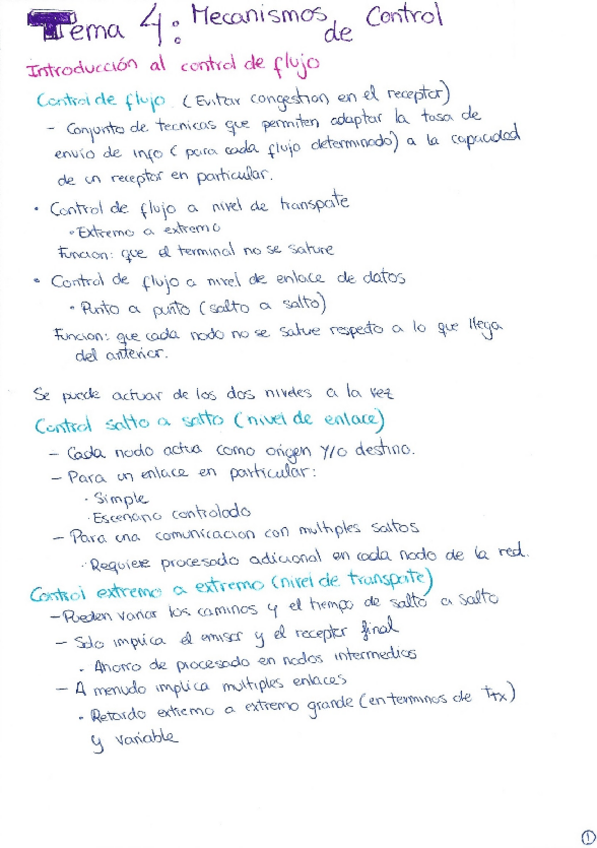 Tema 4: Mecanismos de Control
Introducción al control de flujo
Control de flujo (Evitar congestion en el receptor)
- Conjunto de tecnicas que permiten adaptar la tasa de
envio de info (para cada flujo determinado) a la capacidad
de un receptor en particular.
• Control de flujo a nivel de transpate
• Extremo a extremo
Funcion: que el terminal no se sature
• Control de flujo a nivel de enlace de datos
• Punto a punto (salto a salto)
Funcion: que cada nodo no se sature respecto a lo que llega
del anterior.
Se puede actuar de los dos niveles a la vez
Control salto a salto (nivel de enlace)
- Cada nodo actua como origen y/o destino.
- Para un enlace en particular:
• Simple
• Escenario controlado
- Para una comunicacion con multiples saltos
• Requiere procesado adicional en cada nodo de la red.
Control extremo a extremo (nivel de transpate)
- Pueden variar los caminos y el tiempo de salto a salto
- Solo implica el emisor y el receptor final
• Ahorro de procesado en nodos intermedios
- A menudo implica multiples enlaces
• Retardo extremo a extremo grande (en terminos de ttx)
y variable
1